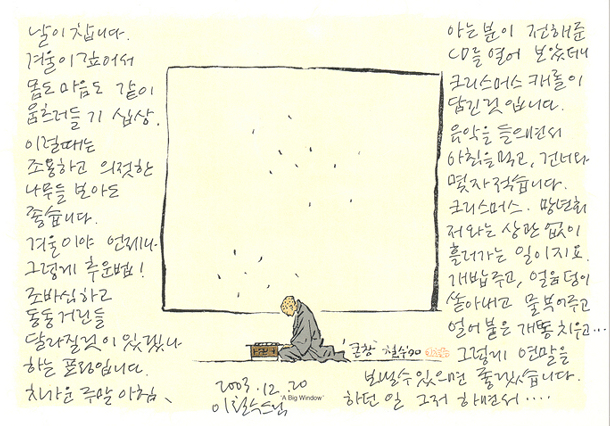 날이 찹니다.
겨울이 깊어서
몸도 마음도 같이
움츠러들기 십상.
이럴때는
조용하고 의젓한
나무를 보아도
좋습니다.
겨울이야 언제나
그렇게 추운법!
조바심하고
동동거린들
달라질것이 있겠나
하는 표정입니다.
차가운 주말 아침,
아는분이 전해준
CD를 열어 보았더니
크리스머스 캐롤이
담긴것입니다.
음악을 들으면서
아침을 먹고, 건너와
몇자 적습니다.
크리스머스. 망년회
저와는 상관 없이
흘러가는 일이지요.
개밥주고, 얼음덩이
쏟아내고 물부어주고
얼어붙은 개똥 치우고…
그렇게 연말을
보낼수 있으면 좋겠습니다.
하던 일 그저 하면서 ....
'큰창' 철수 00
2003.12.20
'A Big Window'
이철수 드림